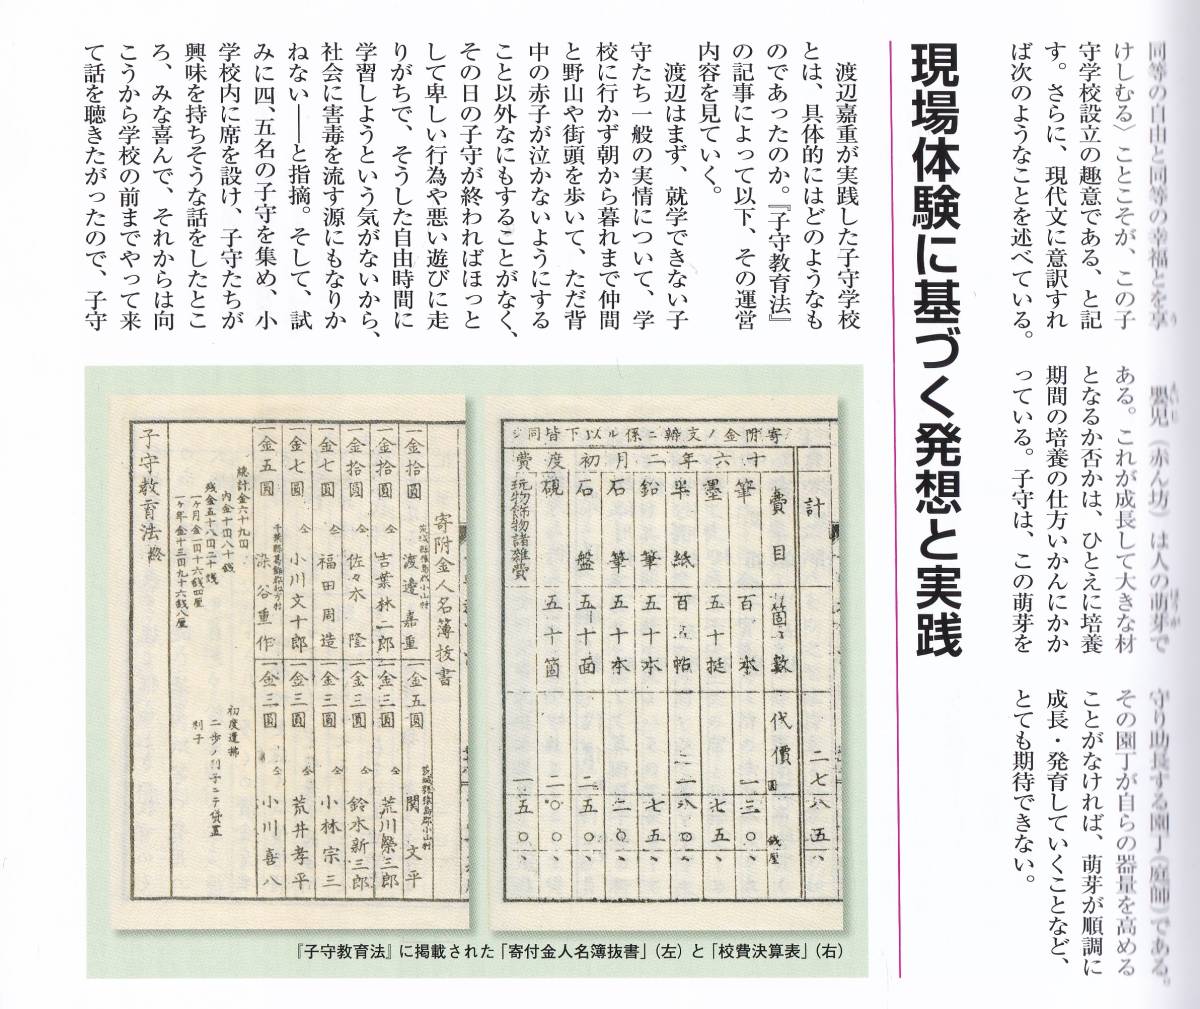 同等の自由と同等の幸福とを享
けしむる〉ことこそが、この子
守学校設立の趣意である、と記
す。さらに、現代文に意訳すれ
ば次のようなことを述べている。
嬰児（赤ん坊）は人の萌芽で
ある。これが成長して大きな材
となるか否かは、ひとえに培養
期間の培養の仕方いかんにかか
っている。子守は、この萌芽を
守り助長する園丁（庭師）である。
その園丁が自らの器量を高める
ことがなければ、萌芽が順調に
成長・発育していくことなど、
とても期待できない。
現場体験に基づく発想と実践
渡辺嘉重が実践した子守学校
とは、具体的にはどのようなも
のであったのか。『子守教育法』
の記事によって以下、その運営
内容を見ていく。
渡辺はまず、就学できない子
守たち一般の実情について、学
校に行かず朝から暮れまで仲間
と野山や街頭を歩いて、ただ背
中の赤子が泣かないようにする
こと以外なにもすることがなく、
その日の子守が終わればほっと
して卑しい行為や悪い遊びに走
りがちで、そうした自由時間に
学習しようという気がないから、
社会に害毒を流す源にもなりか
ねない――と指摘。そして、試
みに四、五名の子守を集め、小
学校内に席を設け、子守たちが
興味を持ちそうな話をしたとこ
ろ、みな喜んで、それからは向
こうから学校の前までやって来
て話を聴きたがったので、子守
寄附金ノ支辨ニ係ル以下皆同シ
十六年二月初度費
計 二七八五、
費目 箇数 代價 圓 銭厘
筆 百本 一三〇、
墨 五十挺 七五、
半紙
鉛筆 五十本 七五、
石筆 五十本 二〇、
石盤 五十面 二五〇、
硯 五十箇 二〇〇、
玩物飾物諸雑費 一五〇、
寄附金人名簿抜書
一金拾圓 渡邊嘉重
一金拾圓 仝 吉葉林二郎
一金拾圓 仝 佐々木隆
一金七圓 仝 福田周造
一金七圓 仝 小川文十郎
一金五圓 染谷重作
一金五圓 関文平
一金三圓 仝 荒川榮三郎
一金三圓 仝 鈴木新三郎
一金三圓 仝 小林宗三
一金三圓 仝 荒井孝平
一金三圓 仝 小川喜八
總計金六十九円
内金十円八十銭 初度遣拂
残金五十八円二十銭 二歩ノ利子ニテ貸置
一ヶ月金一円十六銭四厘 利子
一ヶ年金十三円九十六銭八厘
子守教育法終
『子守教育法』に掲載された「寄付金人名簿抜書」（左）と「校費決算表」（右）